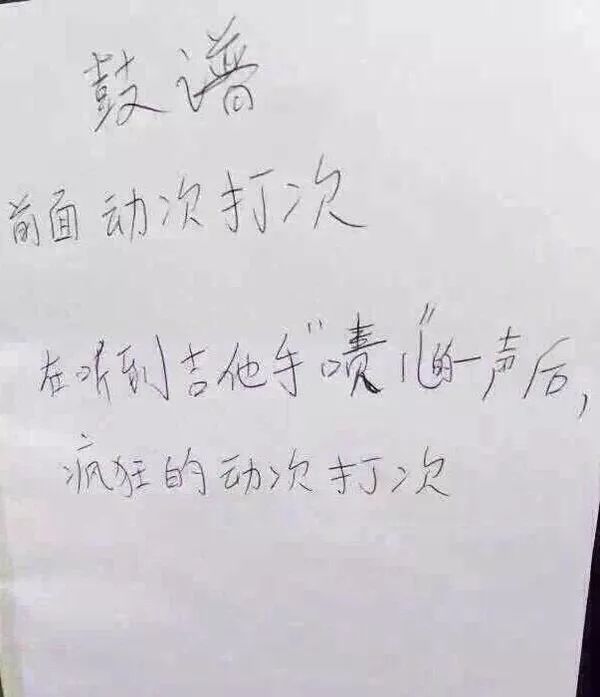 鼓谱
前面动次打次
在听到吉他手"啧儿"的一声后，
疯狂的动次打次